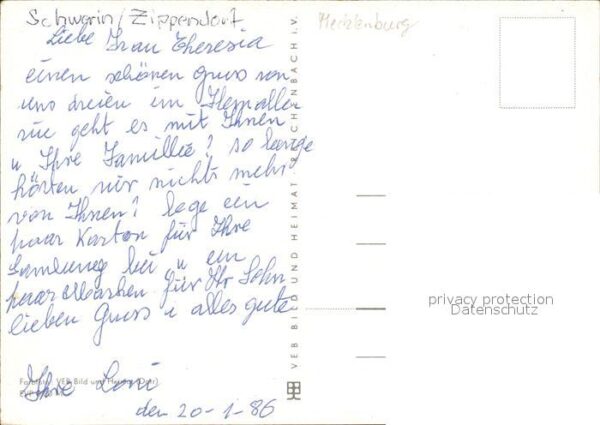 Schwerin/Zippendorf
Mecklenburg
Liebe Frau Theresia
einen schönen Gruss von
uns dreien im
wie geht es mit Ihnen
u Ihre Familie? so lange
hörten wir nichts mehr
von Ihnen! lege ein
paar Karton für Ihre
Samlung bei u ein
paar Marken für Ihr Sohn
lieben Gruss u alles gute
Ihre Loni
den 20-1-86
Farbfoto: VEB Bild und Heimat
VEB BILD UND HEIMAT REICHENBACH i.V.
privacy protection
Datenschutz